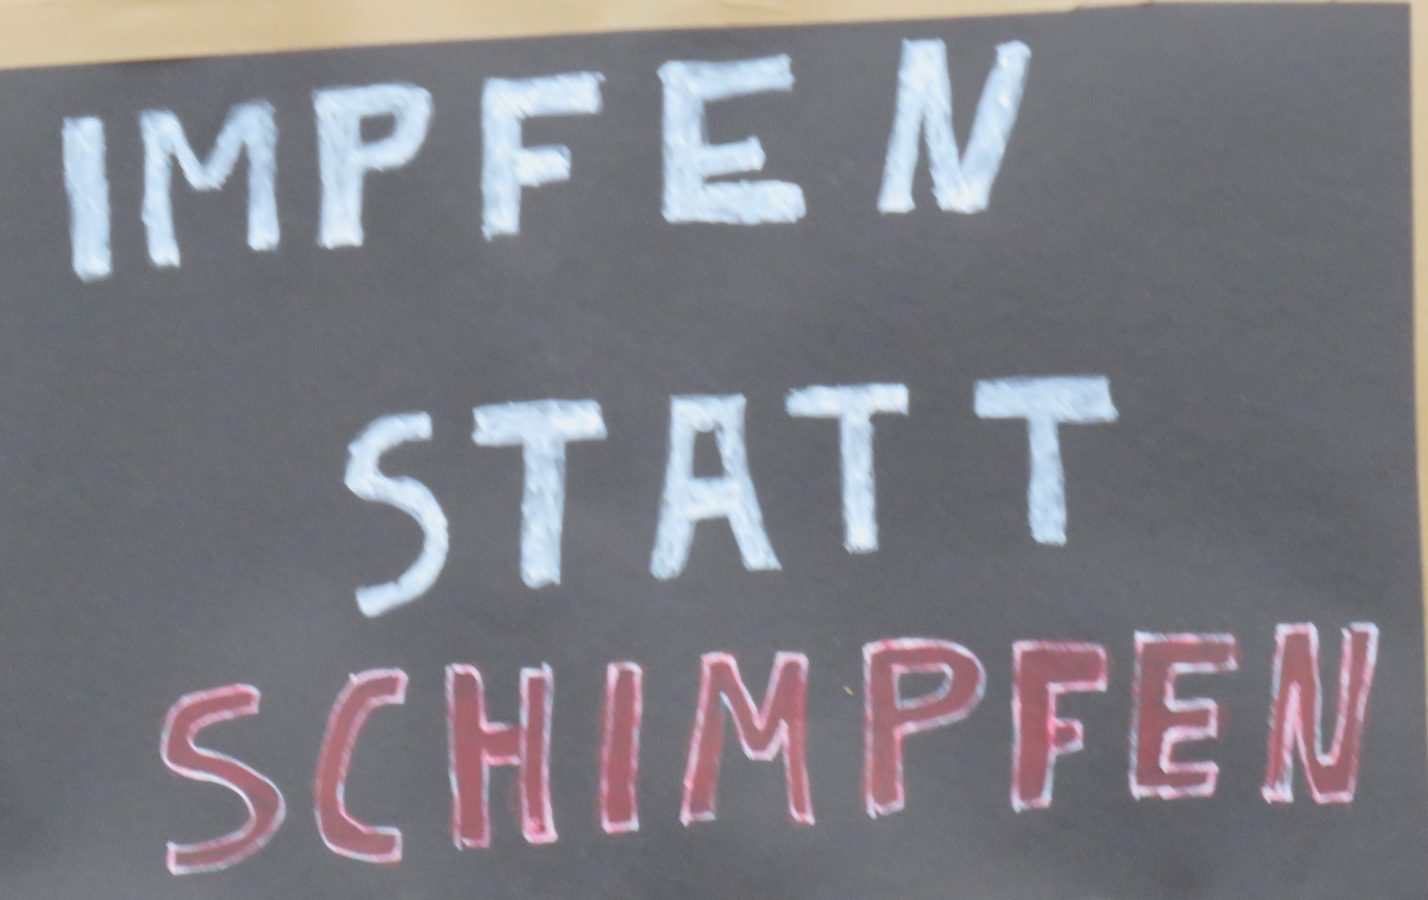 IMPFEN
STATT
SCHIMPFEN